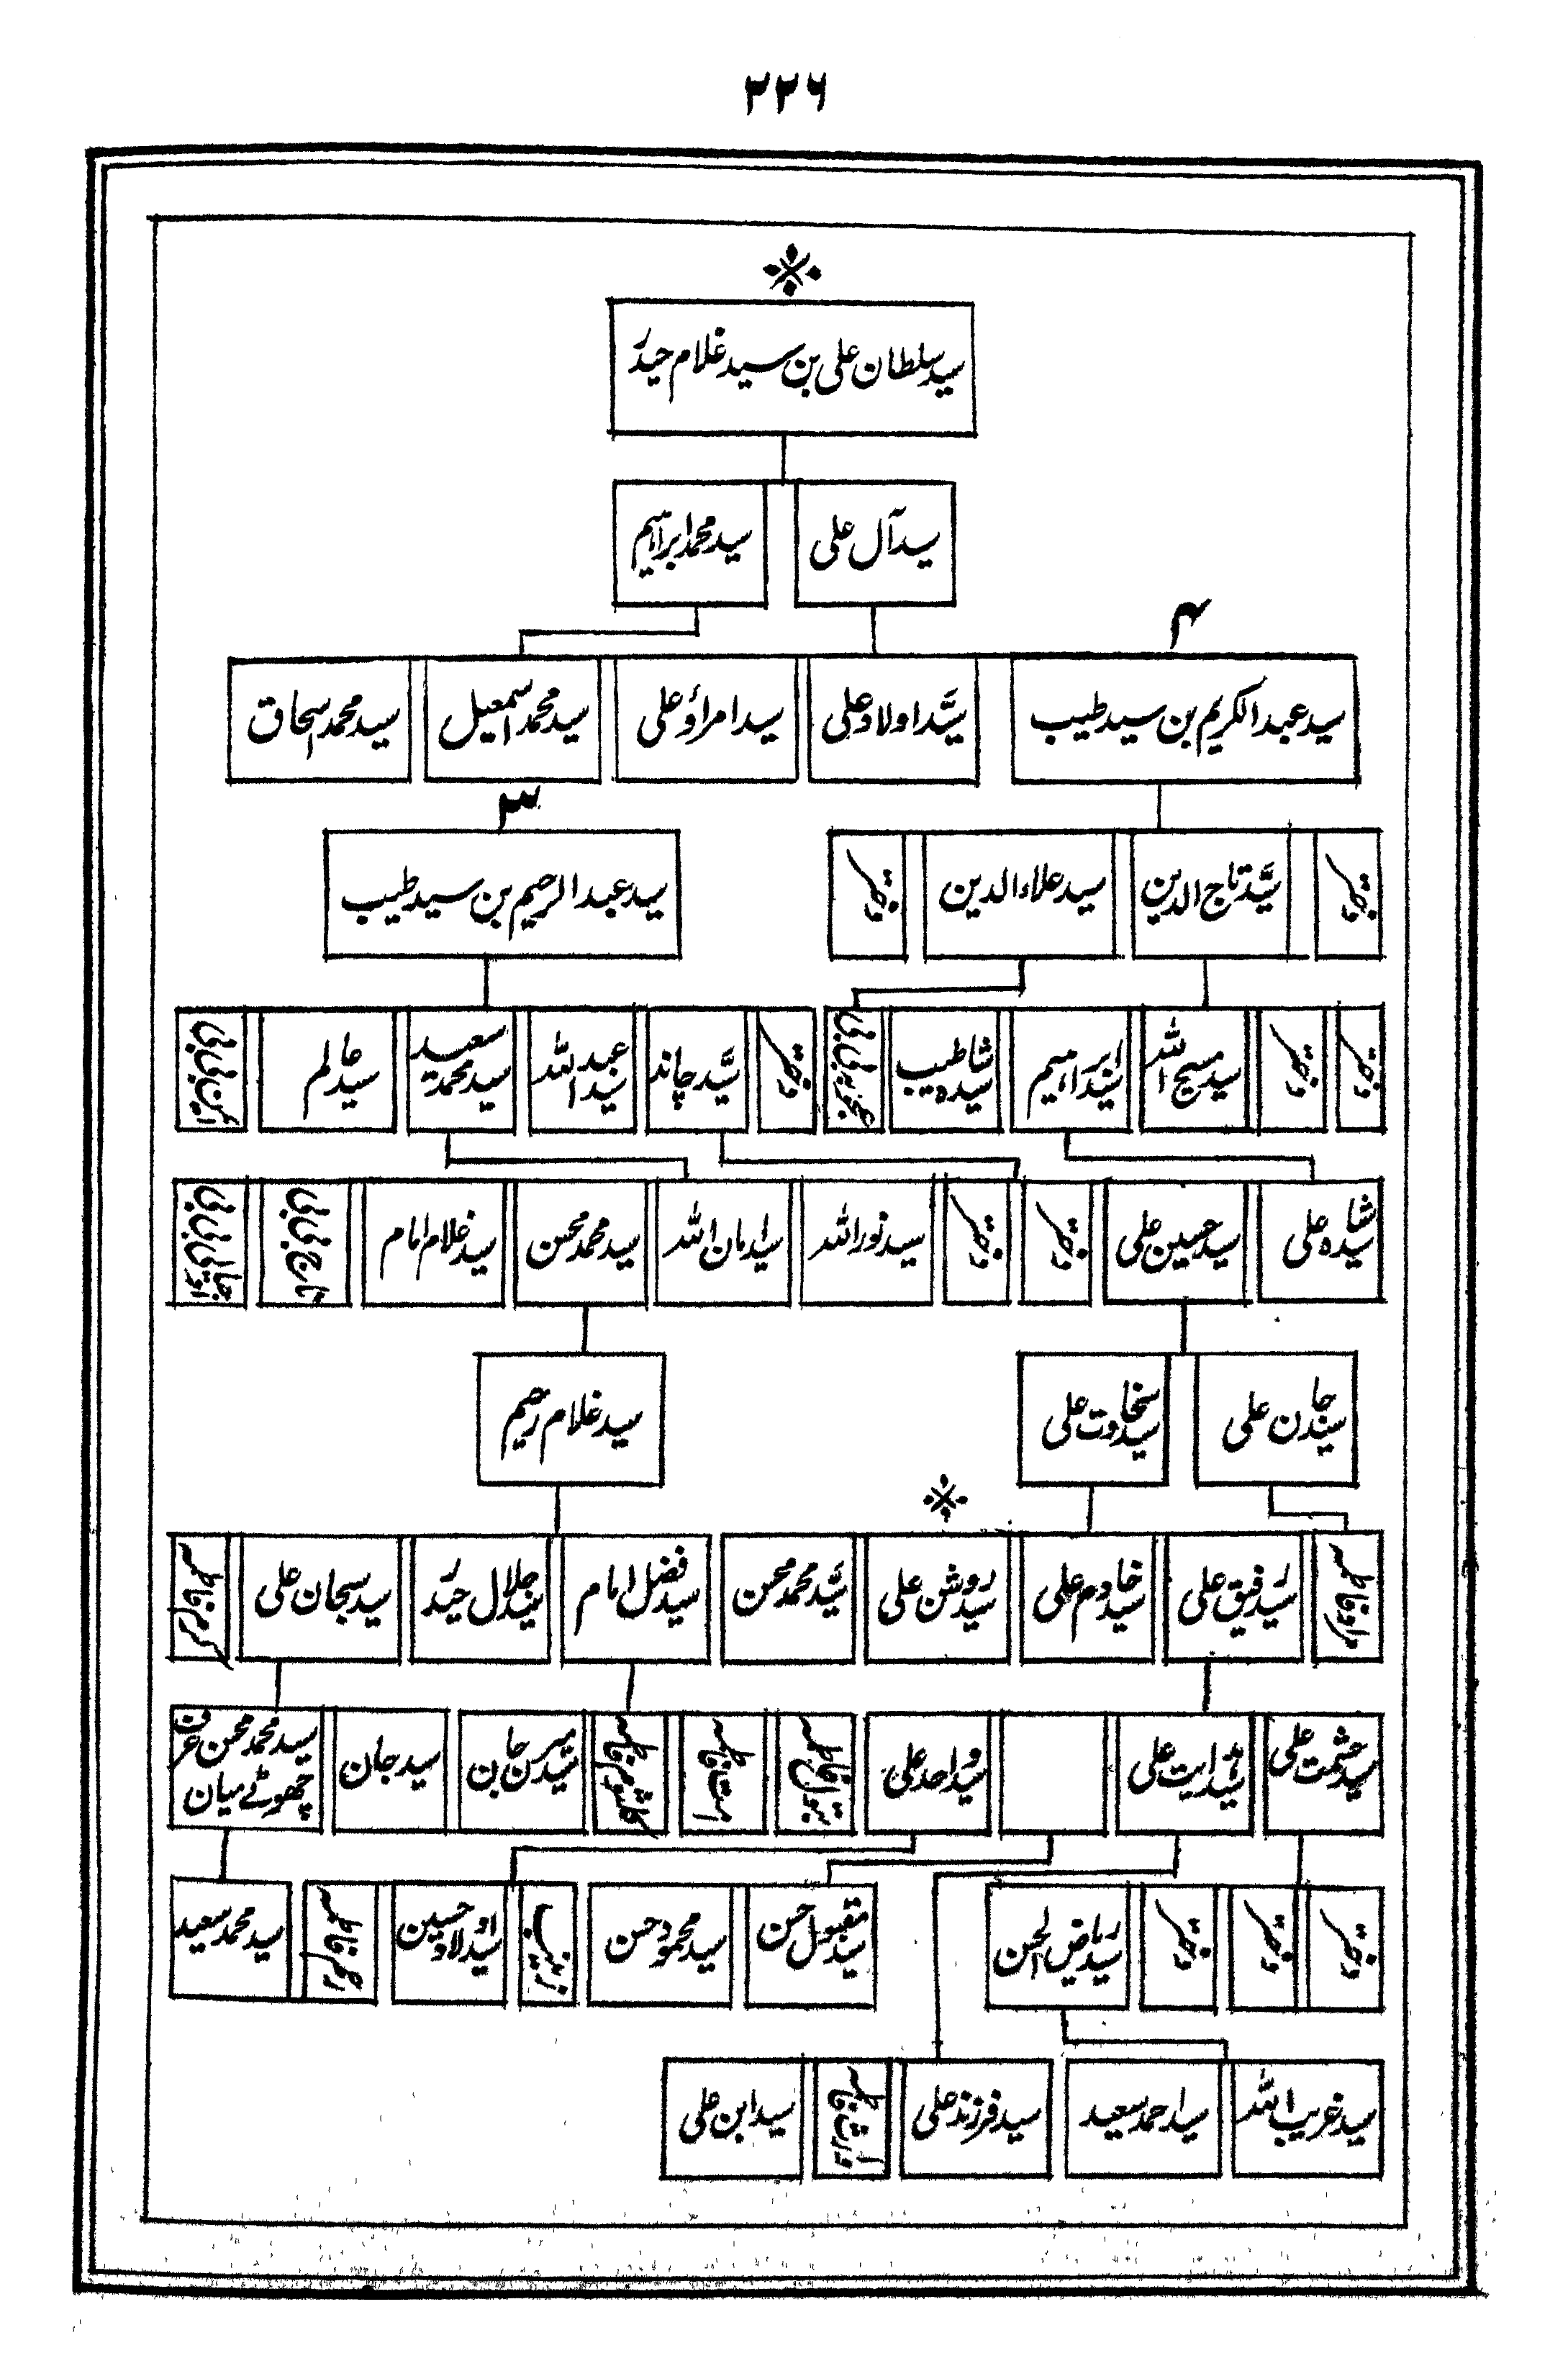 ۲۲۶
سید سلطان علی بن سید غلام حیدر
سید آل علی
سید محمد ابراہیم
۴
سید عبدالکریم بن سید طیب
سید اولاد علی
سید امراؤ علی
سید محمد اسمعیل
سید محمد اسحاق
۳
دختر
سید تاج الدین
سید علاء الدین
دختر
سید عبدالرحیم بن سید طیب
دختر
دختر
سید مسیح اللہ
سید ابراہیم
سید شاہ طیب
بی بی
دختر
سید چاند
سید عبداللہ
سید محمد سعید
سید عالم
بی بی
سید شاہ علی
سید حسین علی
دختر
دختر
سید نور اللہ
سید امان اللہ
سید محمد محسن
سید غلام امام
تاج بی بی
بی بی
سید جان علی
سید سخاوت علی
سید غلام رحیم
مراد فاطمہ
سید رفیق علی
سید خادم علی
سید روشن علی
سید محمد محسن
سید فضل امام
سید جلال حیدر
سید سبحان علی
کریم فاطمہ
سید حشمت علی
سید ہدایت علی
سید واحد علی
بتول فاطمہ
امت فاطمہ
کلثوم فاطمہ
سید میرن جان
سید جان
سید محمد محسن عرف
چھوٹے میاں
دختر
دختر
دختر
سید ریاض الحسن
سید مقبول حسن
سید محمود حسن
زینب
سید اولاد حسین
فاطمہ
سید محمد سعید
سید غریب اللہ
سید احمد سعید
سید فرزند علی
وارث فاطمہ
سید ابن علی